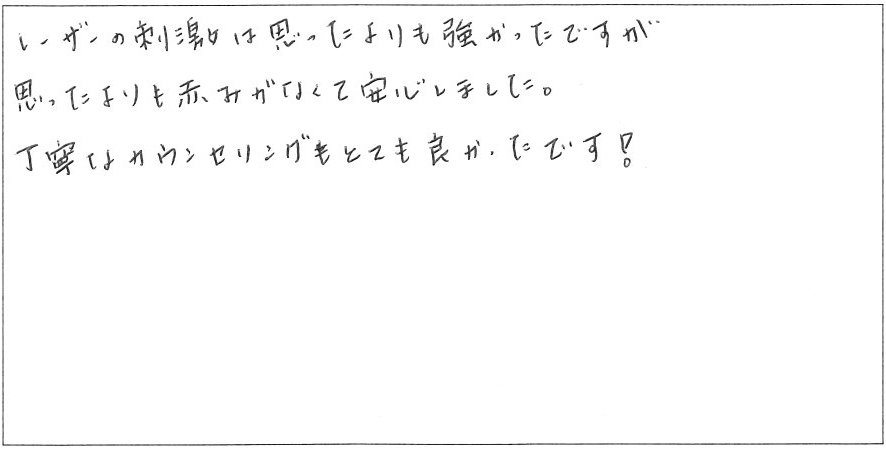 レーザーの刺激は思ったよりも強かったですが
思ったよりも赤みがなくて安心しました。
丁寧なカウンセリングもとても良かったです!